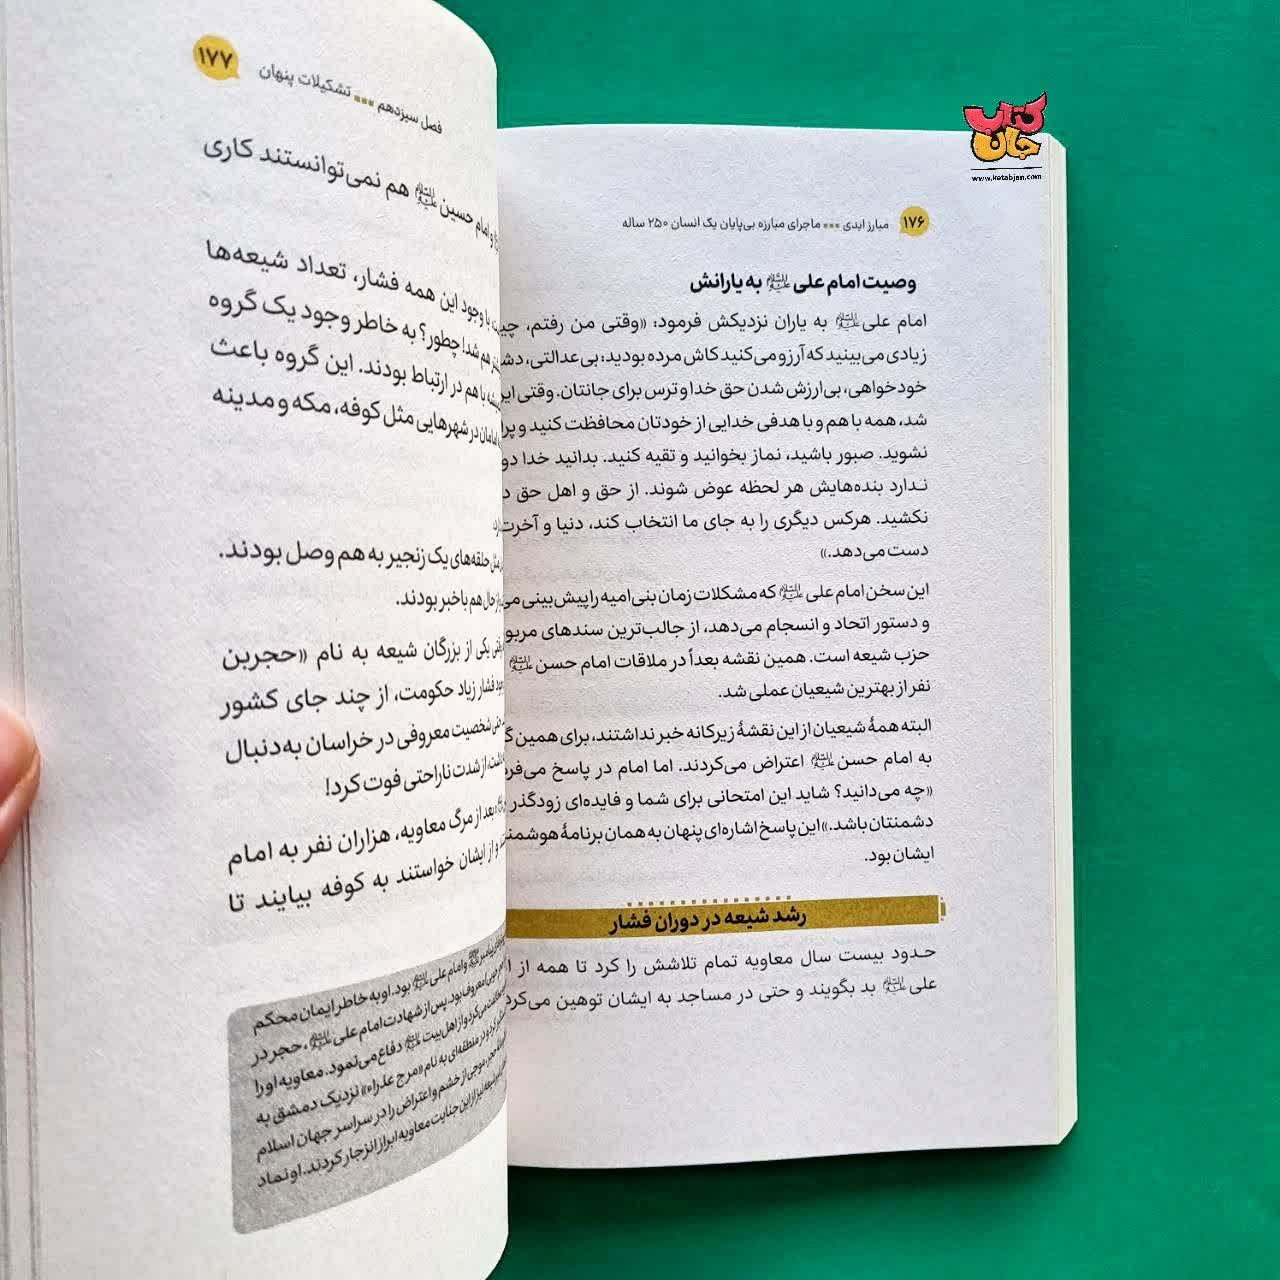 کتاب جان
www.ketabjan.com
۱۷۶ مبارز ابدی ماجرای مبارزه بی‌پایان یک انسان ۲۵۰ ساله
وصیت امام علی علیه‌السلام به یارانش
امام علی علیه‌السلام به یاران نزدیکش فرمود: «وقتی من رفتم،
زیادی می‌بینید که آرزو می‌کنید کاش مرده بودید: بی‌عدالتی،
خودخواهی، بی‌ارزش شدن حق خدا و ترس برای جانتان. وقتی
شد، همه با هم و با هدفی خدایی از خودتان محافظت کنید و
نشوید. صبور باشید، نماز بخوانید و تقیه کنید. بدانید خدا
ندارد بنده‌هایش هر لحظه عوض شوند. از حق و اهل حق
نکشید. هرکس دیگری را به جای ما انتخاب کند، دنیا و آخرت
دست می‌دهد.»
این سخن امام علی علیه‌السلام که مشکلات زمان بنی‌امیه را پیش‌بینی
و دستور اتحاد و انسجام می‌دهد، از جالب‌ترین سندهای
حزب شیعه است. همین نقشه بعداً در ملاقات امام حسن علیه‌السلام
نفر از بهترین شیعیان عملی شد.
البته همهٔ شیعیان از این نقشهٔ زیرکانه خبر نداشتند، برای همین
به امام حسن علیه‌السلام اعتراض می‌کردند. اما امام در پاسخ
«چه می‌دانید؟ شاید این امتحانی برای شما و فایده‌ای زودگذر
دشمنتان باشد.» این پاسخ اشاره‌ای پنهان به همان برنامهٔ
ایشان بود.
رشد شیعه در دوران فشار
حدود بیست سال معاویه تمام تلاشش را کرد تا همه از
علی علیه‌السلام بد بگویند و حتی در مساجد به ایشان توهین
فصل سیزدهم تشکیلات پنهان ۱۷۷
و امام حسین علیه‌السلام هم نمی‌توانستند کاری
با وجود این همه فشار، تعداد شیعه‌ها
هم شد! چطور؟ به خاطر وجود یک گروه
با هم در ارتباط بودند. این گروه باعث
در شهرهایی مثل کوفه، مکه و مدینه
مثل حلقه‌های یک زنجیر به هم وصل بودند.
از حال هم باخبر بودند.
یکی از بزرگان شیعه به نام «حجربن
فشار زیاد حکومت، از چند جای کشور
شخصیت معروفی در خراسان به‌دنبال
از شدت ناراحتی فوت کرد!
بعد از مرگ معاویه، هزاران نفر به امام
و از ایشان خواستند به کوفه بیایند تا
و امام علی علیه‌السلام بود. او به خاطر ایمان محکم
معروف بود. پس از شهادت امام علی علیه‌السلام، حجر در
می‌کرد و از اهل‌بیت علیهم‌السلام دفاع می‌نمود. معاویه او را
و در منطقه‌ای به نام «مرج عذراء» نزدیک دمشق به
موجی از خشم و اعتراض را در سراسر جهان اسلام
نیز از این جنایت معاویه ابراز انزجار کردند. او نماد